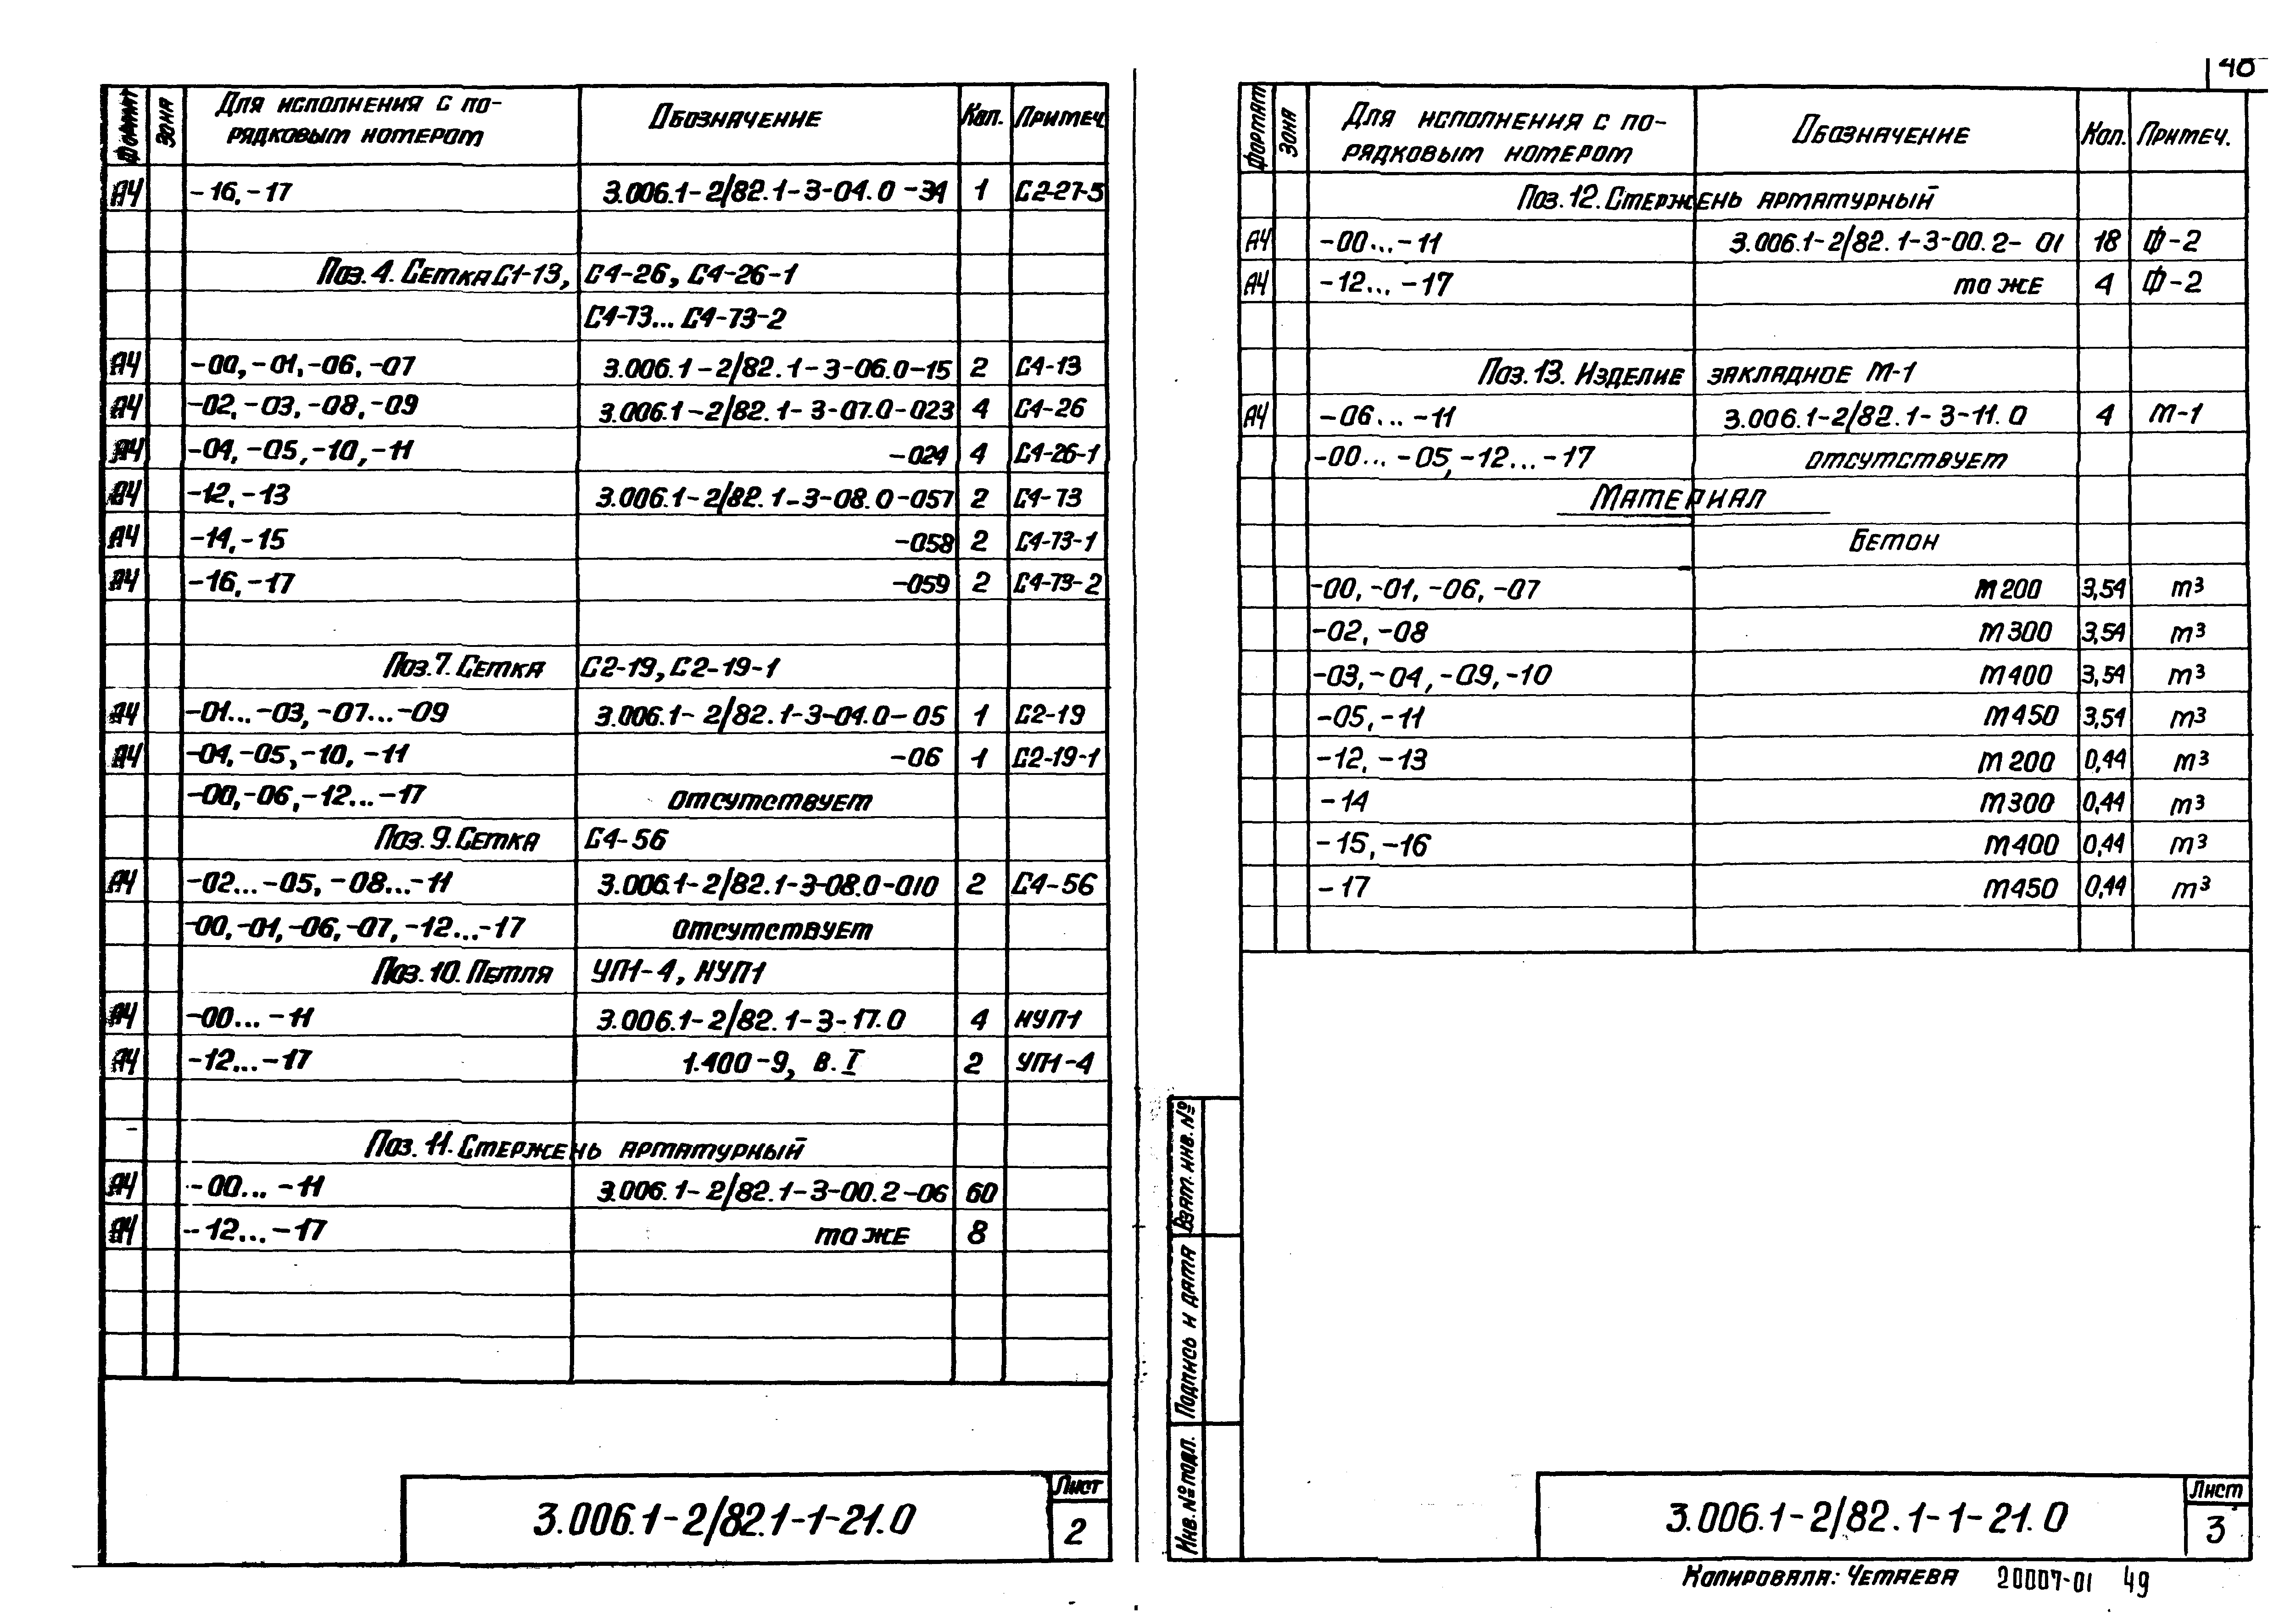 Формат Зона Для исполнения с по-
рядковым номером Обозначение Кол. Примеч.
А4 -16, -17 3.006.1-2/82.1-3-04.0-34 1 С2-27-5
Поз. 4. Сетка С1-13, С4-26, С4-26-1
С4-73... С4-73-2
А4 -00, -01, -06, -07 3.006.1-2/82.1-3-06.0-15 2 С4-13
А4 -02, -03, -08, -09 3.006.1-2/82.1-3-07.0-023 4 С4-26
А4 -04, -05, -10, -11 -024 4 С4-26-1
А4 -12, -13 3.006.1-2/82.1-3-08.0-057 2 С4-73
А4 -14, -15 -058 2 С4-73-1
А4 -16, -17 -059 2 С4-73-2
Поз. 7. Сетка С2-19, С2-19-1
А4 -01... -03, -07... -09 3.006.1-2/82.1-3-04.0-05 1 С2-19
А4 -04, -05, -10, -11 -06 1 С2-19-1
-00, -06, -12... -17 отсутствует
Поз. 9. Сетка С4-56
А4 -02... -05, -08... -11 3.006.1-2/82.1-3-08.0-010 2 С4-56
-00, -01, -06, -07, -12... -17 отсутствует
Поз. 10. Петля УП1-4, НУП1
А4 -00... -11 3.006.1-2/82.1-3-17.0 4 НУП1
А4 -12... -17 1.400-9, в. I 2 УП1-4
Поз. 11. Стержень арматурный
А4 -00... -11 3.006.1-2/82.1-3-00.2-06 60
А4 -12... -17 то же 8
3.006.1-2/82.1-1-21.0 Лист 2
Формат Зона Для исполнения с по-
рядковым номером Обозначение Кол. Примеч.
Поз. 12. Стержень арматурный
А4 -00... -11 3.006.1-2/82.1-3-00.2-01 18 Ф-2
А4 -12... -17 то же 4 Ф-2
Поз. 13. Изделие закладное М-1
А4 -06... -11 3.006.1-2/82.1-3-11.0 4 М-1
-00... -05, -12... -17 отсутствует
Материал
Бетон
-00, -01, -06, -07 М200 3,54 м³
-02, -08 М300 3,54 м³
-03, -04, -09, -10 М400 3,54 м³
-05, -11 М450 3,54 м³
-12, -13 М200 0,44 м³
-14 М300 0,44 м³
-15, -16 М400 0,44 м³
-17 М450 0,44 м³
Взят. инв. №
Подпись и дата
Инв. № подл.
3.006.1-2/82.1-1-21.0 Лист 3
Копировала: Четаева 20007-01 49